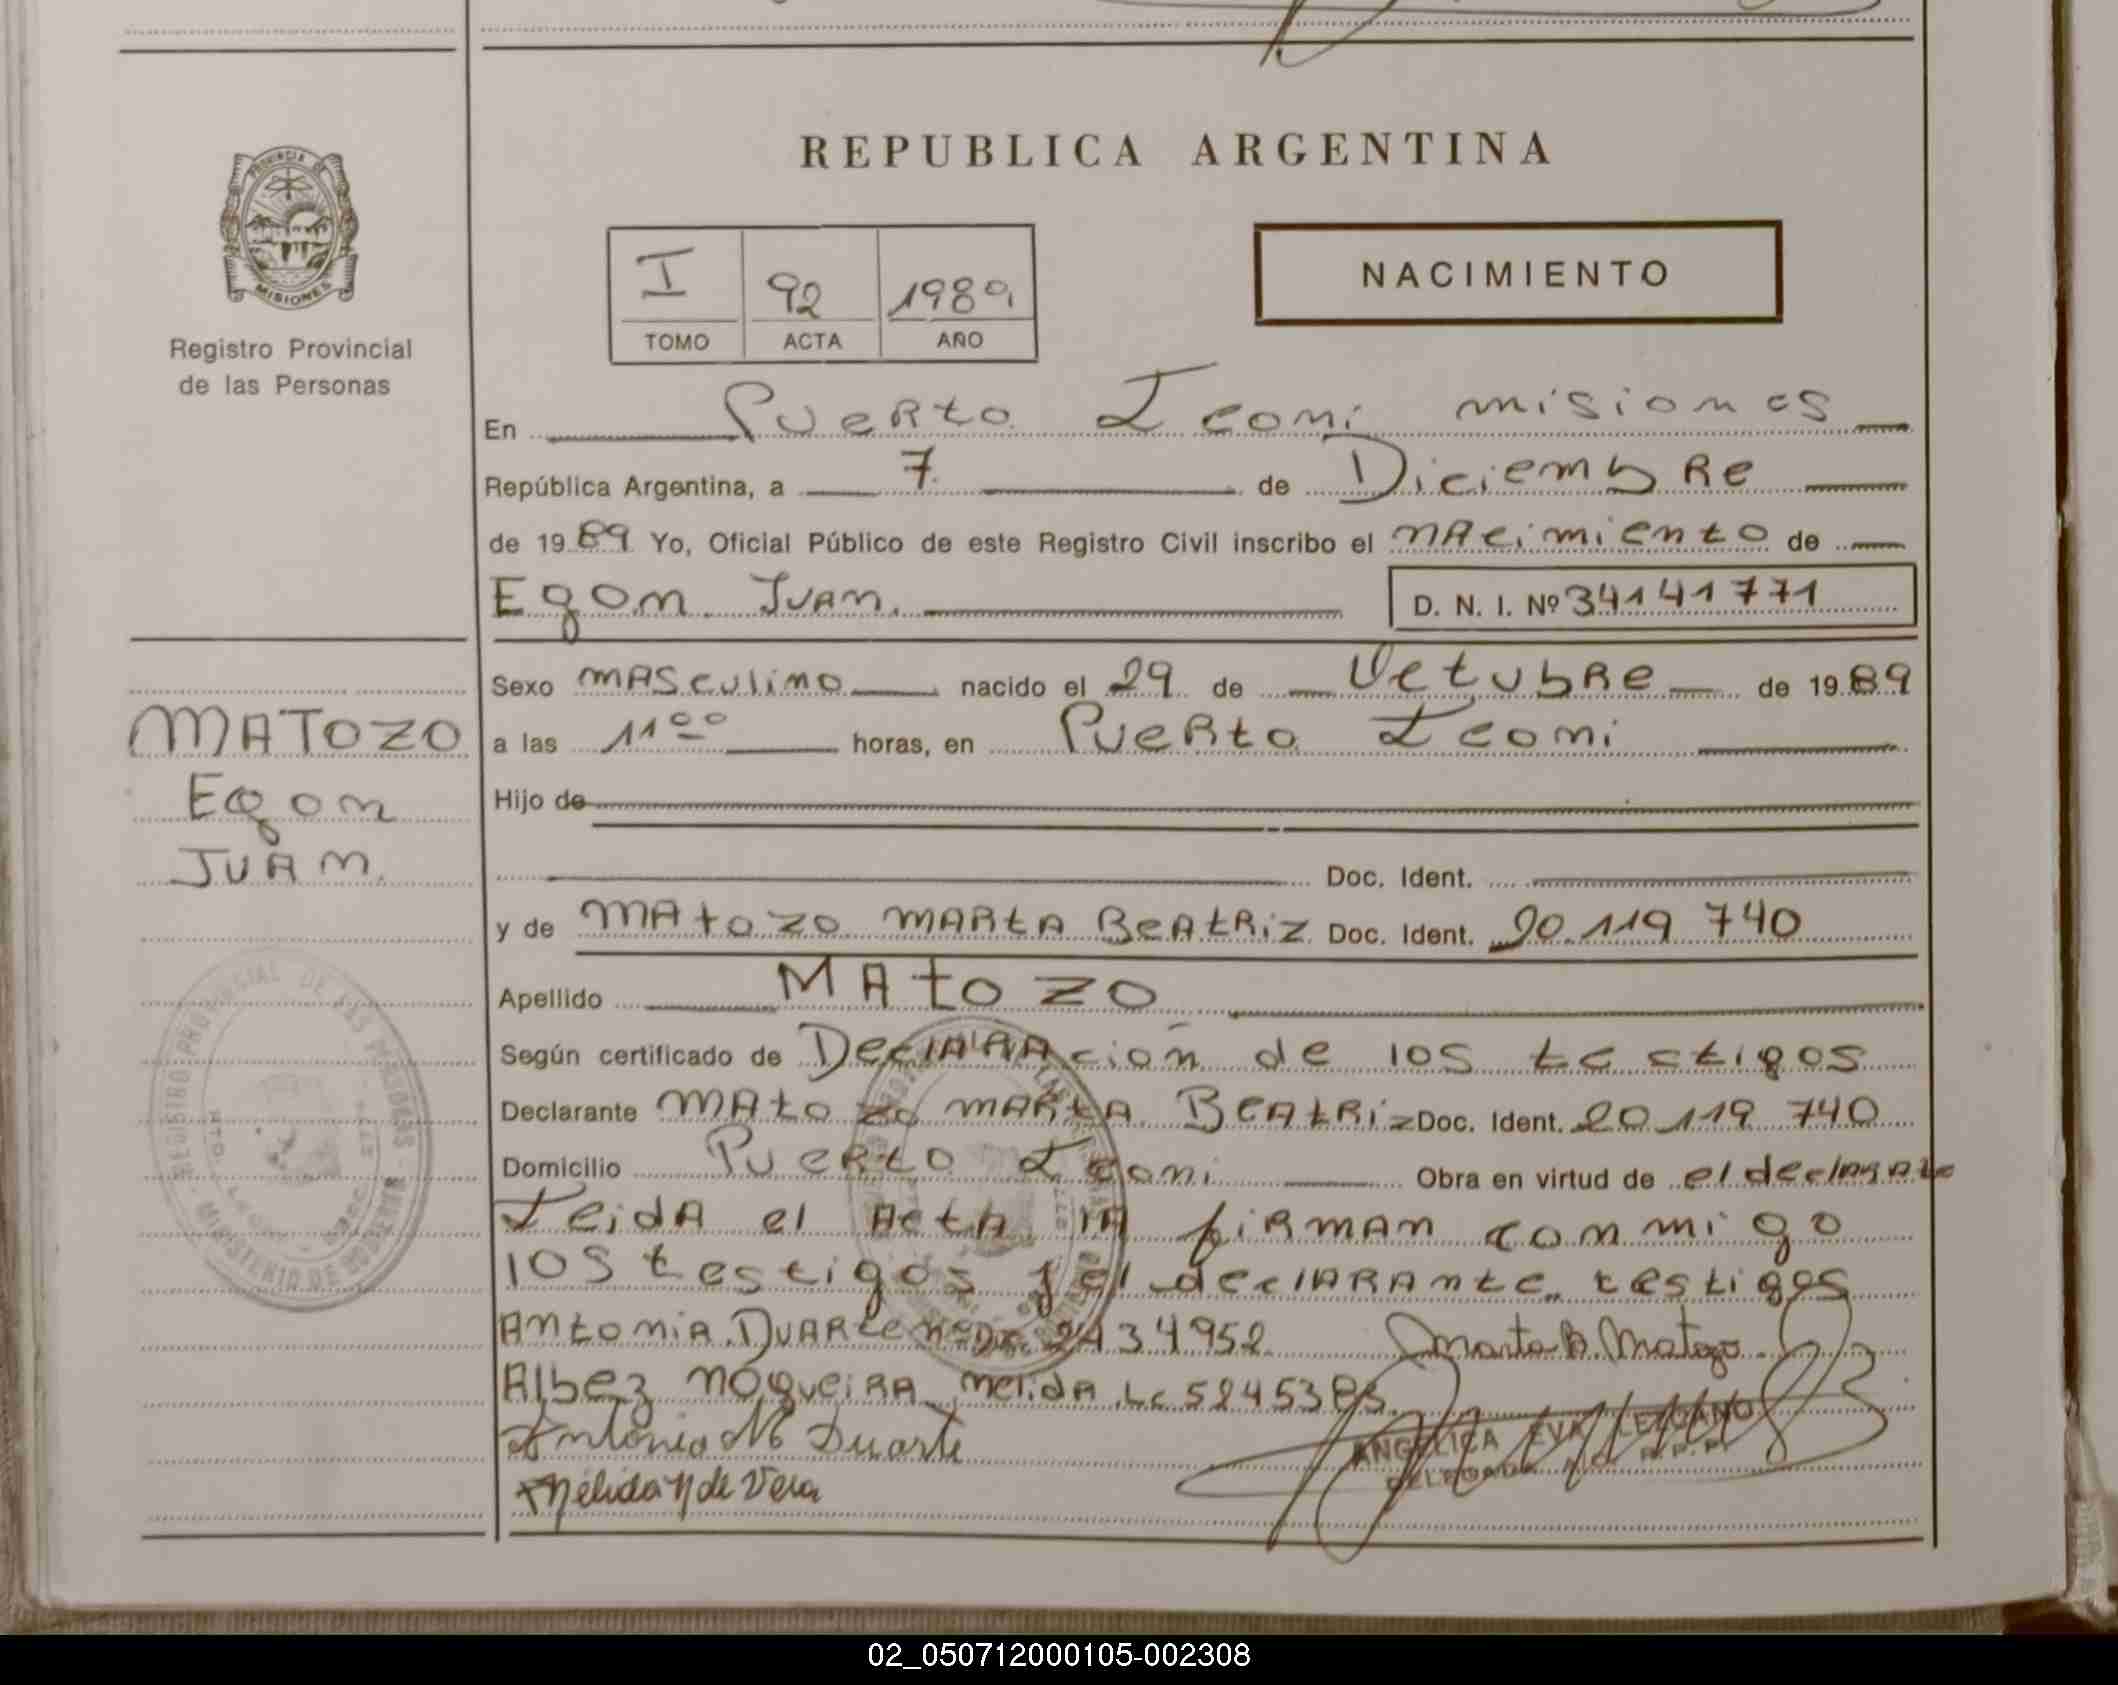 REPUBLICA ARGENTINA
PROVINCIA DE
MISIONES
Registro Provincial
de las Personas
I 92 1989
TOMO ACTA AÑO
NACIMIENTO
En Puerto Leoni misiones
República Argentina, a 7 de Diciembre
de 1989 Yo, Oficial Público de este Registro Civil inscribo el nacimiento de
Egon Juan. D. N. I. Nº 34141771
Sexo masculino nacido el 29 de Octubre de 1989
a las 11 00 horas, en Puerto Leoni
Hijo de
Doc. Ident.
y de Matozo Marta Beatriz Doc. Ident. 20.119 740
Apellido Matozo
Según certificado de Declaración de los testigos
Declarante Matozo Marta Beatriz Doc. Ident. 20 119 740
Domicilio Puerto Leoni Obra en virtud de el declarante
Leida el Acta la firman conmigo
los testigos y el declarante. testigos
Antonia Duarte 2434952
Albez Nogueira Melida Lc
Marta B. Matozo
Antonia M Duarte
Mélida N de Vera
ANGELICA EVA LEZCANO
DELEGADA R.P.P.
MATOZO
Egon
Juan.
REGISTRO PROVINCIAL DE LAS PERSONAS
MINISTERIO DE GOBIERNO
02_050712000105-002308